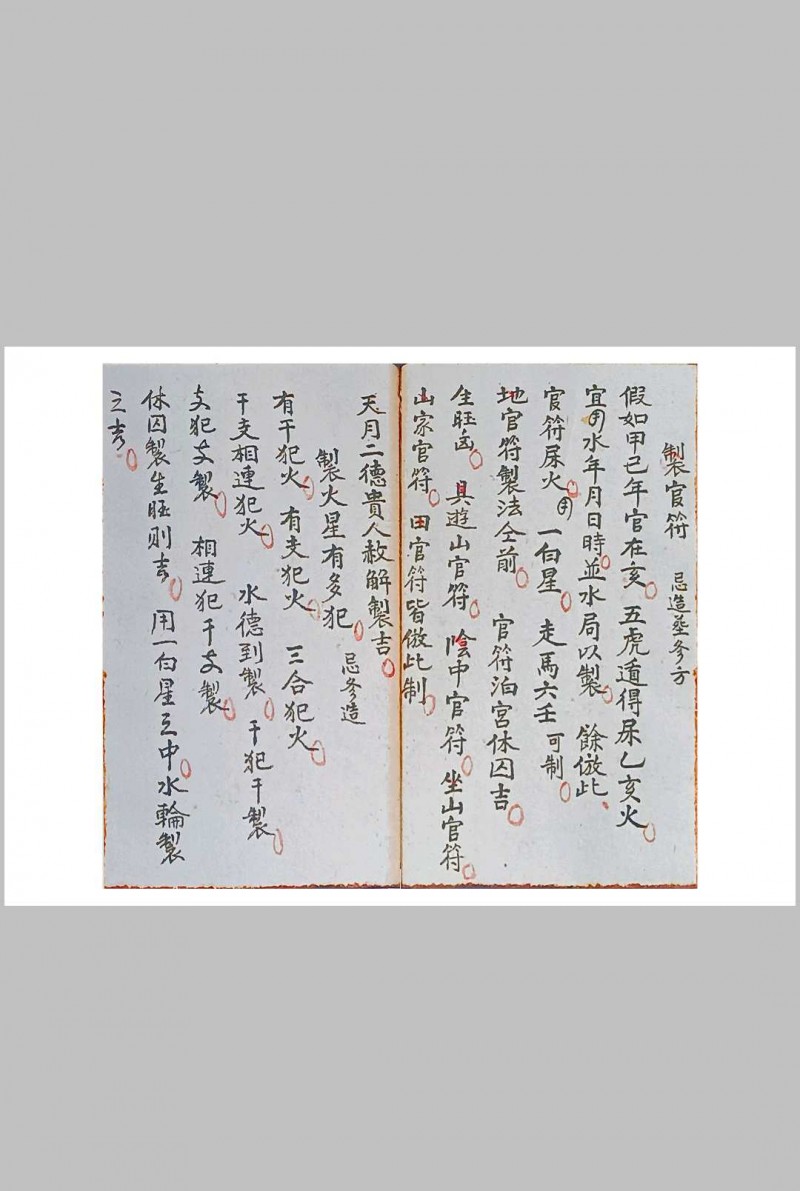 製官符 忌造葬參方
假如甲己年官在亥 五虎遁得屎乙亥火
宜用水年月日時並水局以製 餘倣此
官符屎火用 一白星 走馬六壬可制
地官符製法仝前 官符泊宮休囚吉
生旺凶 具遊山官符 陰中官符 坐山官符
山家官符 田官符皆倣此制
天月二德貴人赦解製吉
製火星有多犯 忌參造
有干犯火 有支犯火 三合犯火
干支相連犯火 水德到製 干犯干製
支犯支製 相連犯干支製
休囚製生旺則吉 用一白星主中水輪製
之吉